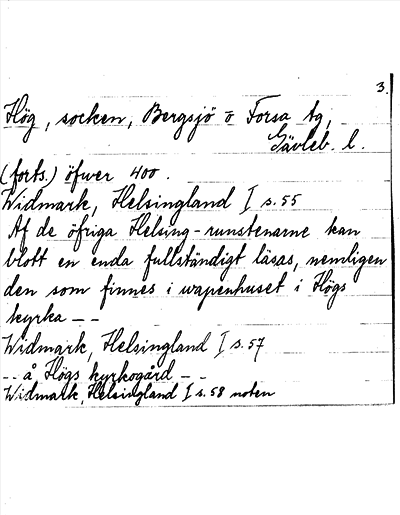 3.
Hög, socken, Bergsjö o Forsa tg,
Gävleb. l.
(forts.) öfwer 400.
Widmark, Helsingland I s. 55
Af de öfriga Helsing-runstenarne kan
blott en enda fullständigt läsas, nemligen
den som finnes i wapenhuset i Högs
kyrka - -
Widmark, Helsingland I s. 57
- - å Högs kyrkogård - -
Widmark, Helsingland I s. 58 noten